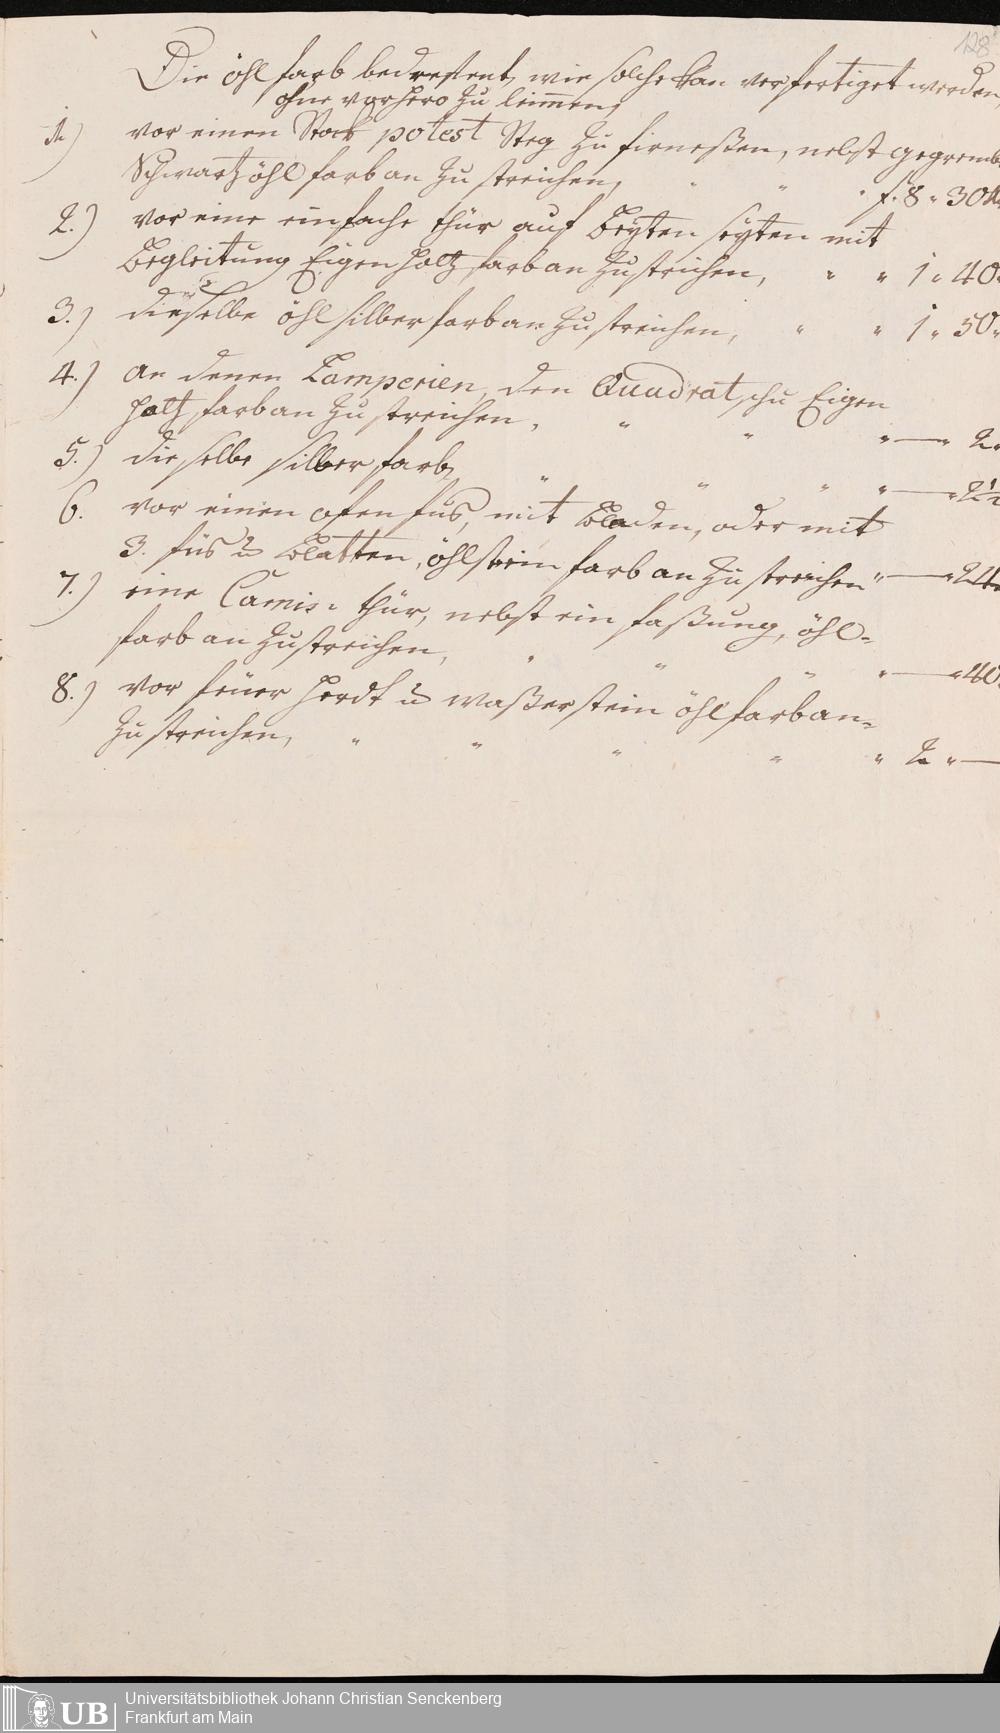 128
Die öhl farb bedrefent, wie solche kan verfertiget werden,
ohne vorhero zu leimmen,
1.) vor einen Stock potest Steg zu firneßen, nebst
Schwartz öhl farb an zu streichen, " " " f. 8 " 30
2.) vor eine einfache thür auf beyten seyten mit
begleitung Eigen holtz farb an zu streichen, " " 1 " 40
3.) dieselbe öhl silber farb an zu streichen, " " 1 " 50 "
4.) an denen Lamperien, den Quadrat schu Eigen
holtz farb an zu streichen, " " " — " 2 "
5.) dieselbe silber farb, " " " " — " 2½
6. vor einen ofen fus, mit bladen, oder mit
3. füs u blatten, öhl stein farb an zu streichen " — " 24
7.) eine Camin: thür, nebst ein faßung, öhl-
farb an zu streichen, " " " " — " 40
8.) vor feüer herdt u waßerstein öhl farb an-
zu streichen, " " " " " 2 " —
UB
Universitätsbibliothek Johann Christian Senckenberg
Frankfurt am Main